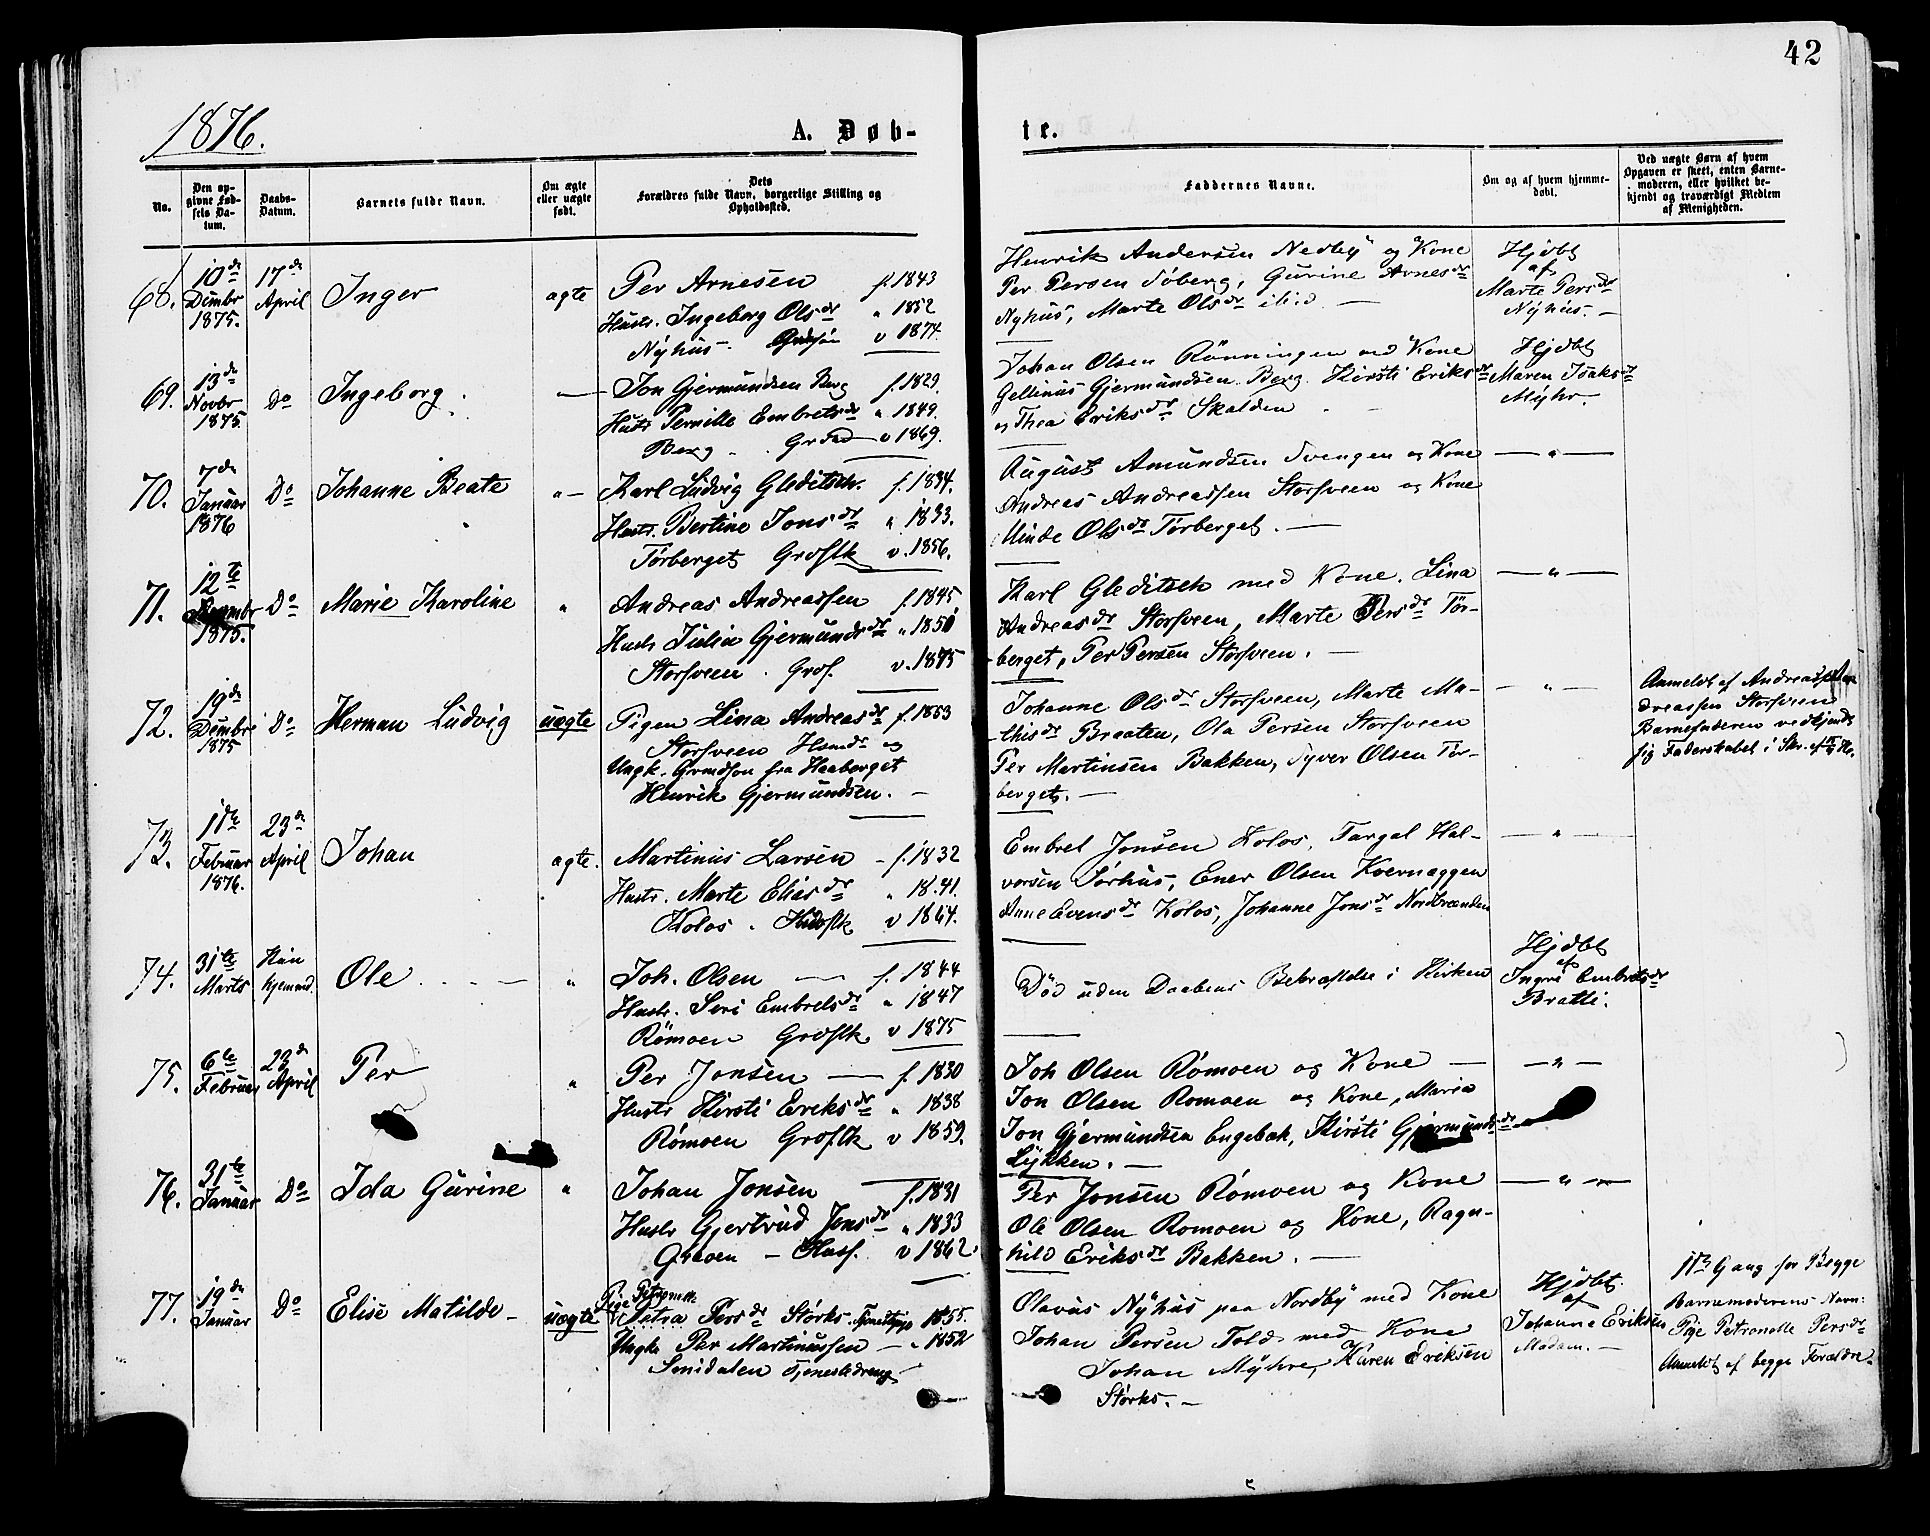 42
1876.
A. Døb-
te.
No.
Den opgivne Fødsels Datum.
Daabs-Datum.
Barnets fulde Navn.
Om ægte eller uægte født.
Dets Forældres fulde Navn, borgerlige Stilling og Opholdssted.
Faddernes Navne.
Om og af hvem hjemmedøbt.
Ved uægte Børn af hvem Opgaven er skeet, enten Barnemoderen, eller hvilket bekjendt og troværdigt Medlem af Menigheden.
68. 10de Dcmbr 1875. 17de April Inger ægte
Per Arnesen f. 1843
Hustr. Ingeborg Olsdr " 1852
Nyhus. v 1874.
Henrik Andersen Nedby og Kone
Per Persen Søberg, Gurine Arnesdr
Nyhus, Marte Olsdr ibid —
Hjdbt af Marte Persdr Nyhus. —
69. 13de Novbr 1875 Do Ingeborg. —
Jon Gjermundsen Berg f. 1829.
Hustr Pernille Embretsdr " 1849.
Berg v 1869.
Johan Olsen Rønningen med Kone
Gjermundsen Berg. Kirsti Eriksdr
og Thea Eriksdr Skalden
Hjdbt Maren Isaksdr Myhr.
70. 7de Januar 1876 Do Johanne Beate " —
Karl Ludvig Gleditsch. f. 1834.
Hustr. Bertine Jonsdr " 1833.
Tørberget Grdsfk v. 1856.
August Amundsen Svengen og Kone
Andreas Andreassen Storsveen og Kone
Minde Olsdr Tørberget. —
— " —
71. 12te 1875. Do Marie Karoline "
Andreas Andreassen f. 1845
Hustr Julia Gjermundsdr " 1850
Storsveen. Grdsf. v. 1875
Karl Gleditsch med Kone. Lina
Andreasdr Storsveen, Marte Persdr Tør-
berget, Per Persen Storsveen. —
— " —
72. 19de Dcmbr 1875 Do Herman Ludvig uægte
Pigen Lina Andreasdr f. 1853
Storsveen Hsmdr og
Ungk. Grmdsøn fra Haaberget
Henrik Gjermundsen. —
Johanne Olsdr Storsveen, Marte Ma-
thisdr Braaten, Ola Persen Storsveen
Per Martinsen Bakken, Syver Olsen Tør-
berget. —
— " —
Anmeldt af Andreas An-
dreassen Storsveen
Barnefaderen vedkjendt
sig Faderskabet i Skr. af
73. 11te Februar 1876. 23de April Johan ægte.
Martinus Larsen - f. 1832
Hustr. Marte Eliasdr " 18.41.
Kolos. v 1864.
Embret Jonsen Kolos, Targal Hal-
vorsen Sørhus, Ener Olsen Kvernæggen
Anne Evensdr Kolos, Johanne Jonsdr Nordstranden
— " —
74. 31te Marts Kun hjemmd. Ole — "
Joh. Olsen — f. 1844
Hustr. Seri Embretsdr " 1847
Rømoen Grdsfk v 1875
Død uden Daabens Bekræftelse i Kirken
Hjdbt af Ingri Embretsdr Bratli.
75. 6te Februar 23de April Per "
Per Jonsen — f. 1830
Hustr Kirsti Eriksdr " 1838
Rømoen Grdsfk v 1859.
Joh Olsen Rømoen og Kone —
Jon Olsen Romoen og Kone, Maria
Jon Gjermundsen Engebak, Kirsti Gjermundsdr
Lykken. —
— " —
76. 31te Januar Do Ida Gurine "
Johan Jonsen f. 1831
Hustr Gjertrud Jensdr " 1833
Græoen — Husf. v 1862.
Per Jonsen Rømoen og Kone
Ole Olsen Romoen og Kone, Ragn-
hild Eriksdr Bakken. —
— " —
77. 19de Januar Do Elise Matilde — uægte
Pige Petronelle
Petra Persdr Størks Tjenestepige 1855.
Ungk Per Martinussen — " 1852
Semsdalen Tjenestedreng
Olavus Nyhus paa Nordby med Kone
Johan Persen Told med Kone
Johan Myhre, Karen Eriksen
Størks. —
Hjdbt. af Johanne Eriksen Madam. —
1ste Gang for Begge
Barnemoderens Navn:
Pige Petronelle Persdr
Anmeldt af begge Forældre.